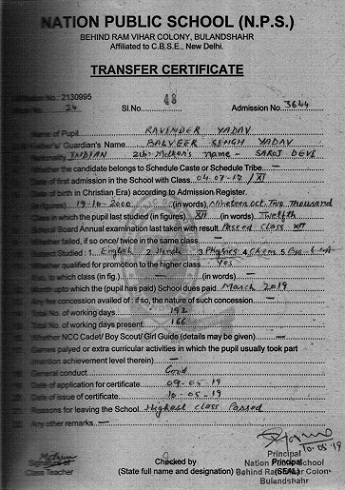 NATION PUBLIC SCHOOL (N.P.S.)
BEHIND RAM VIHAR COLONY, BULANDSHAHR
Affiliated to C.B.S.E., New Delhi.
TRANSFER CERTIFICATE
No.: 2130995
No. 24 Sl.No. 48 Admission No. 3644
Name of Pupil RAVENDER YADAV
Father's/ Guardian's Name BALVEER SINGH YADAV
Nationality INDIAN Mother's Name - SAROJ DEVI
Whether the candidate belongs to Schedule Caste or Schedule Tribe —
Date of first admission in the School with Class 04-07-17 / XI
Date of birth in Christian Era) according to Admission Register.
19-10-2000 (in words) Nineteen oct. Two Thousand
Class in which the pupil last studied (in figures) XII (in words) Twelfth
School Board Annual examination last taken with result Passed Class XII
Whether failed, if so once/ twice in the same class —
Studied : 1. English 2. Hindi 3 Physics 4 Chem 5
Whether qualified for promotion to the higher class Yes
to which class (in fig.) — (in words) —
upto which the (pupil has paid) School dues paid March 2019
Any fee concession availed of : if so, the nature of such concession —
Total No. of working days 192
Total No. of working days present 166
Whether NCC Cadet/ Boy Scout/ Girl Guide (details may be given) —
Games palyed or extra curricular activities in which the pupil usually took part
(mention achievement level therein) —
General conduct Good
Date of application for certificate 09-05-19
Date of issue of certificate 10-05-19
Reasons for leaving the School Highest Class Passed
Any other remarks —
10-05-19
Signature of Checked by Principal
Class Teacher (State full name and designation) Nation Public School
(SEAL) Behind Ram Vihar Colony
Bulandshahr